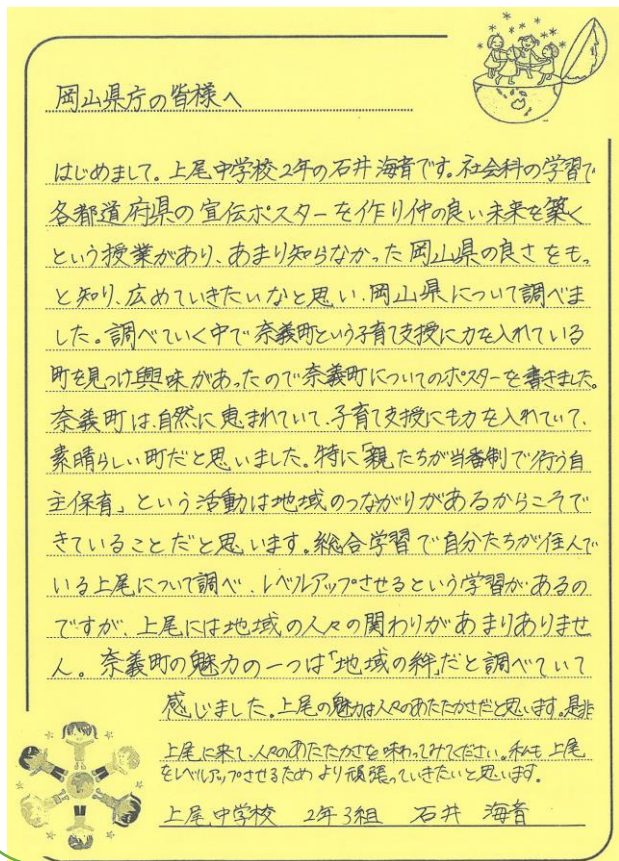 岡山県庁の皆様へ
はじめまして。上尾中学校2年の石井海音です。社会科の学習で
各都道府県の宣伝ポスターを作り仲の良い未来を築く
という授業があり、あまり知らなかった岡山県の良さをも
っと知り、広めていきたいなと思い、岡山県について調べま
した。調べていく中で奈義町という子育て支援に力を入れている
町を見つけ興味があったので奈義町についてのポスターを書きました。
奈義町は、自然に恵まれていて、子育て支援にも力を入れていて、
素晴らしい町だと思いました。特に「親たちが当番制で行う自
主保育」という活動は地域のつながりがあるからこそで
きていることだと思います。総合学習で自分たちが住んで
いる上尾について調べ、レベルアップさせるという学習があるの
ですが、上尾には地域の人々の関わりがあまりありませ
ん。奈義町の魅力の一つは「地域の絆」だと調べていて
感じました。上尾の魅力は人々のあたたかさだと思います。是非
上尾に来て、人々のあたたかさを味わってみてください。私も上尾
をレベルアップさせるためより頑張っていきたいと思います。
上尾中学校 2年3組 石井 海音